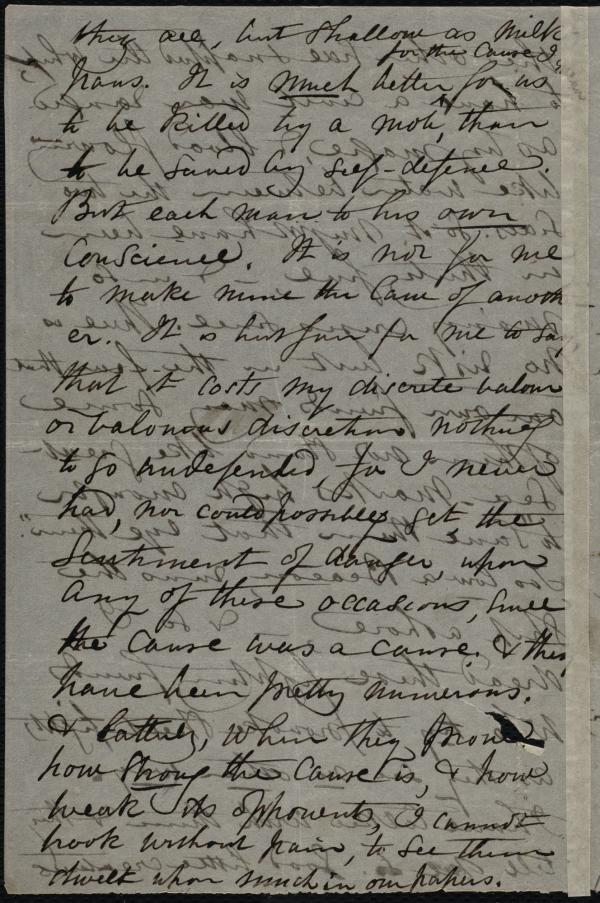 they are, but shallow as milk
for the Cause I
pans. It is much better for us
to be killed by a mob, than
to be saved by self-defence.
But each man to his own
Conscience. It is not for me
to make mine the law of anoth
er. It is but fair for me to say
that it costs my discrete valour
or valourous discretion nothing
to go undefended, for I never
had, nor could possibly get the
Sentiment of danger, upon
any of these occasions, since
the cause was a cause. & they
have been pretty numerous.
& latterly, when they prove
how strong the Cause is, & how
weak its opponents, I cannot
look without pain, to see them
dwelt upon much in our papers.